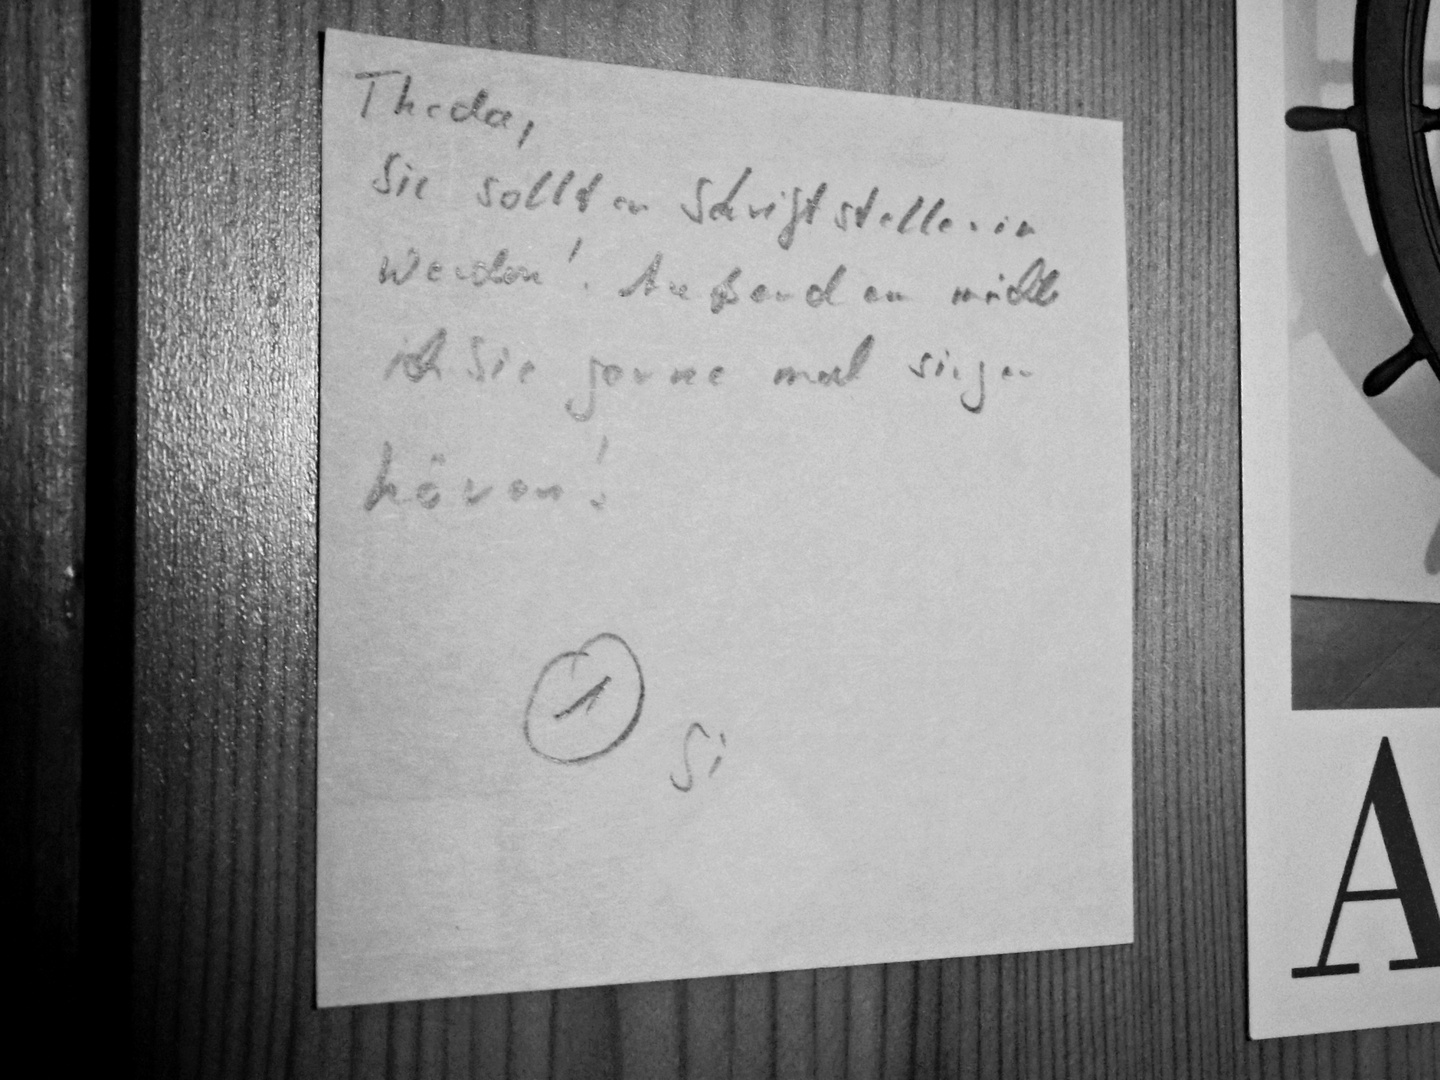 Theda,
Sie sollten Schriftstellerin
werden! Außerdem möchte
ich Sie gerne mal singen
hören!
1
Si
A